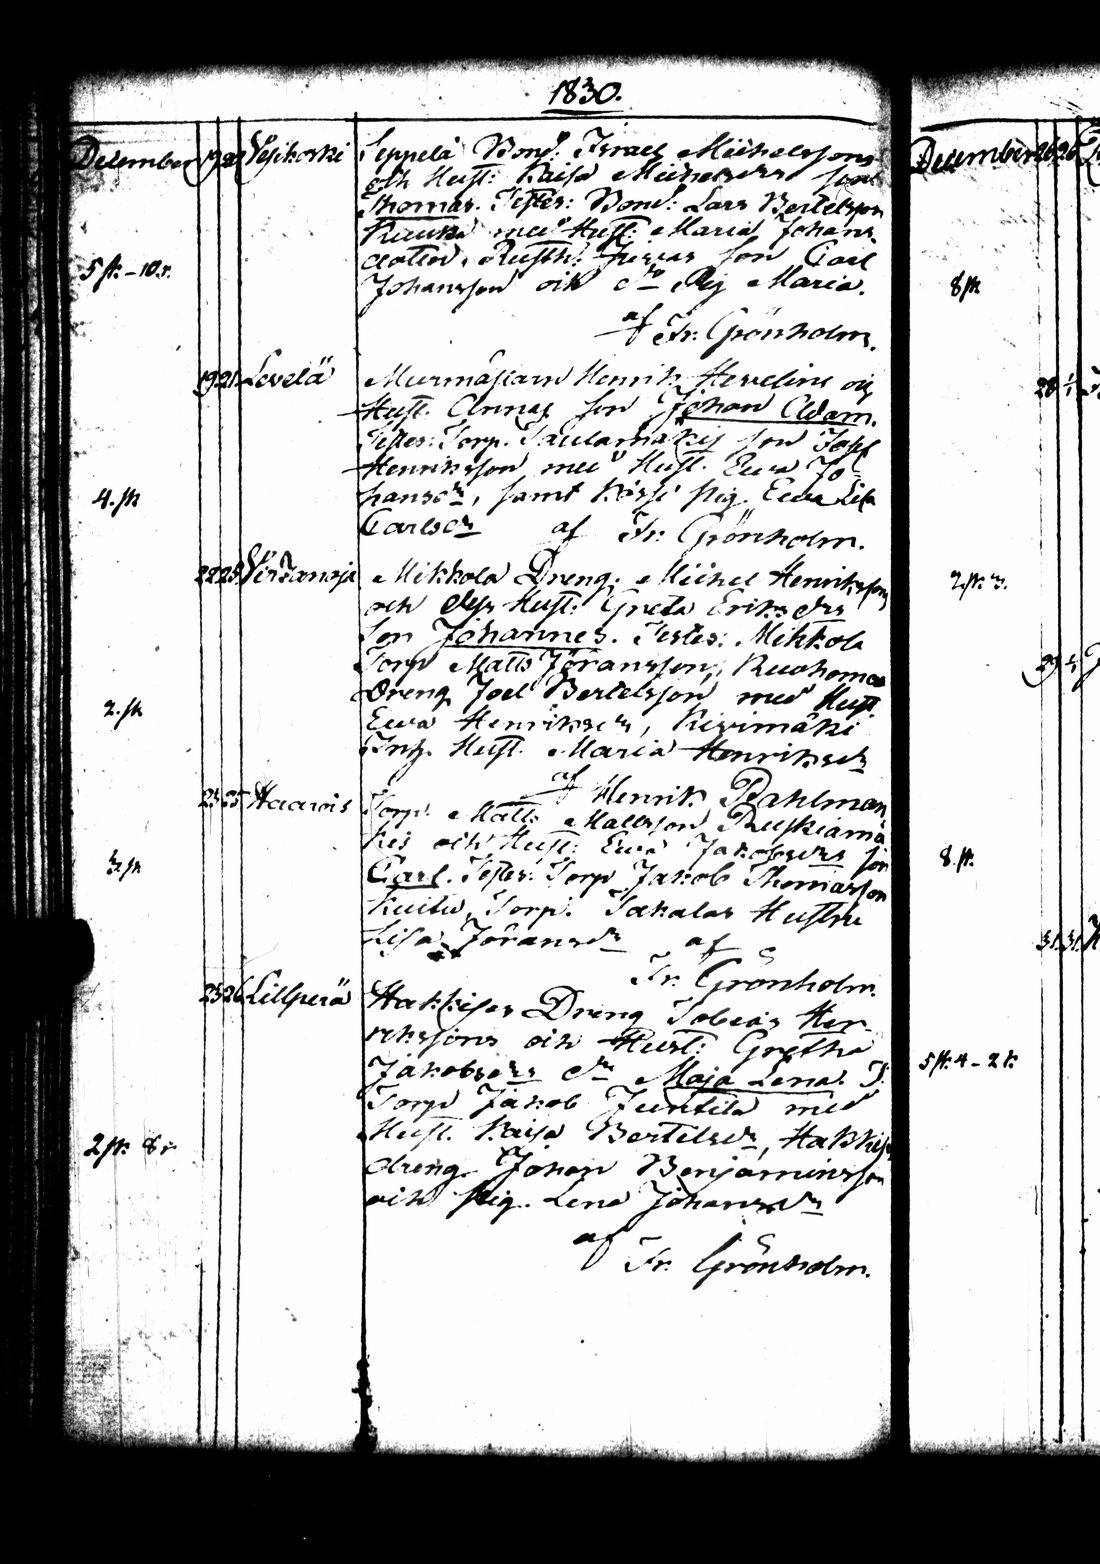 1830.
December 19 21 Vesikoski Seppelä Bond. Israel Michelssons
och Hust: Kaisa Michelsdrs son
Thomas. Testes: Bond: Lars Bertelsson
med Hust: Maria Johans
dotter, Rusth: son Carl
5 sk - 10 r. Johansson och Pig Maria.
af Fr: Grönholm.
19 21 Levelä Murmästarn Henrik Hevelins och
Hust. Annas son Johan Adam.
Testes: Torp. son Josef
Henriksson med Hust. Ewa Jo-
4. sk hansdr, samt pig. Ewa Lisa
Carlsdr af Fr. Grönholm.
22 25 Virtanoja Mikkola Dreng. Michel Henrikssons
och dess Hust: Greta Eriksdrs
son Johannes. Testes: Mikkola
Torp Matts Jöransson, Ruohomaa
2. sk Dreng Joel Bertelsson med Hust.
Ewa Henriksdr, Kivimäki
Inh. Hust. Maria Henriksdr
af Henrik Dahlman
23 25 Haarois Torp. Matts Mattsson Ruskiamä
kis och Hust: Ewa Jakobsdrs son
3. sk Carl. Testes: Torp Jakob Thomasson
Kuitu, Torp. Hustru
Lisa Jöransdr af
Fr. Grönholm.
25 26 Lillperä Dreng Tobias Hen-
rikssons och Hust: Gretha
Jakobsdrs dr Maja Lena. T.
Torp Jakob Junttila med
2 sk 8 r Hust. Kaisa Bertelsdr,
dreng. Johan Benjaminsson
och pig. Lena Johansdr
af
Fr. Grönholm.
December 26 26
8 sk
28
2 sk 3.
29
8. sk.
31. 31.
5 sk. 4 - 2 k.